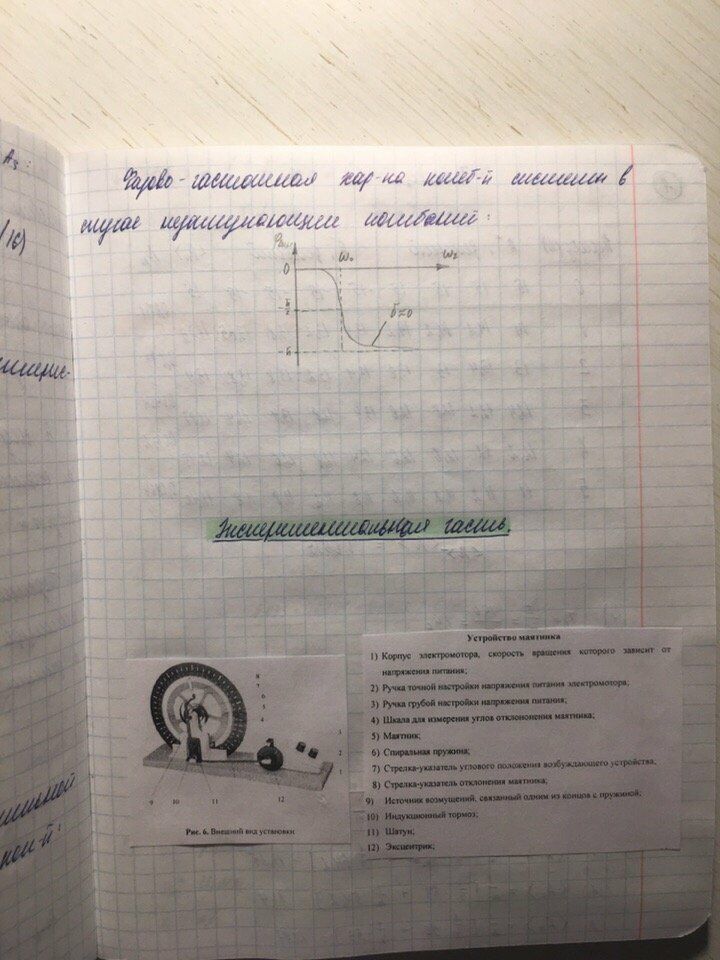 A₃ :
/16)
Фазово-частотная хар-ка колеб-й системы в
случае незатухающих колебаний:
0
ω₀
ω₂
π/2
π
δ≈0
Экспериментальная часть.
Устройство маятника
1) Корпус электромотора, скорость вращения которого зависит от
напряжения питания;
2) Ручка точной настройки напряжения питания электромотора;
3) Ручка грубой настройки напряжения питания;
4) Шкала для измерения углов отклононения маятника;
5) Маятник;
6) Спиральная пружина;
7) Стрелка-указатель углового положения возбуждающего устройства;
8) Стрелка-указатель отклонения маятника;
9) Источник возмущений, связанный одним из концов с пружиной;
10) Индукционный тормоз;
11) Шатун;
12) Эксцентрик;
8
7
6
5
4
3
2
1
9 10 11 12
Рис. 6. Внешний вид установки